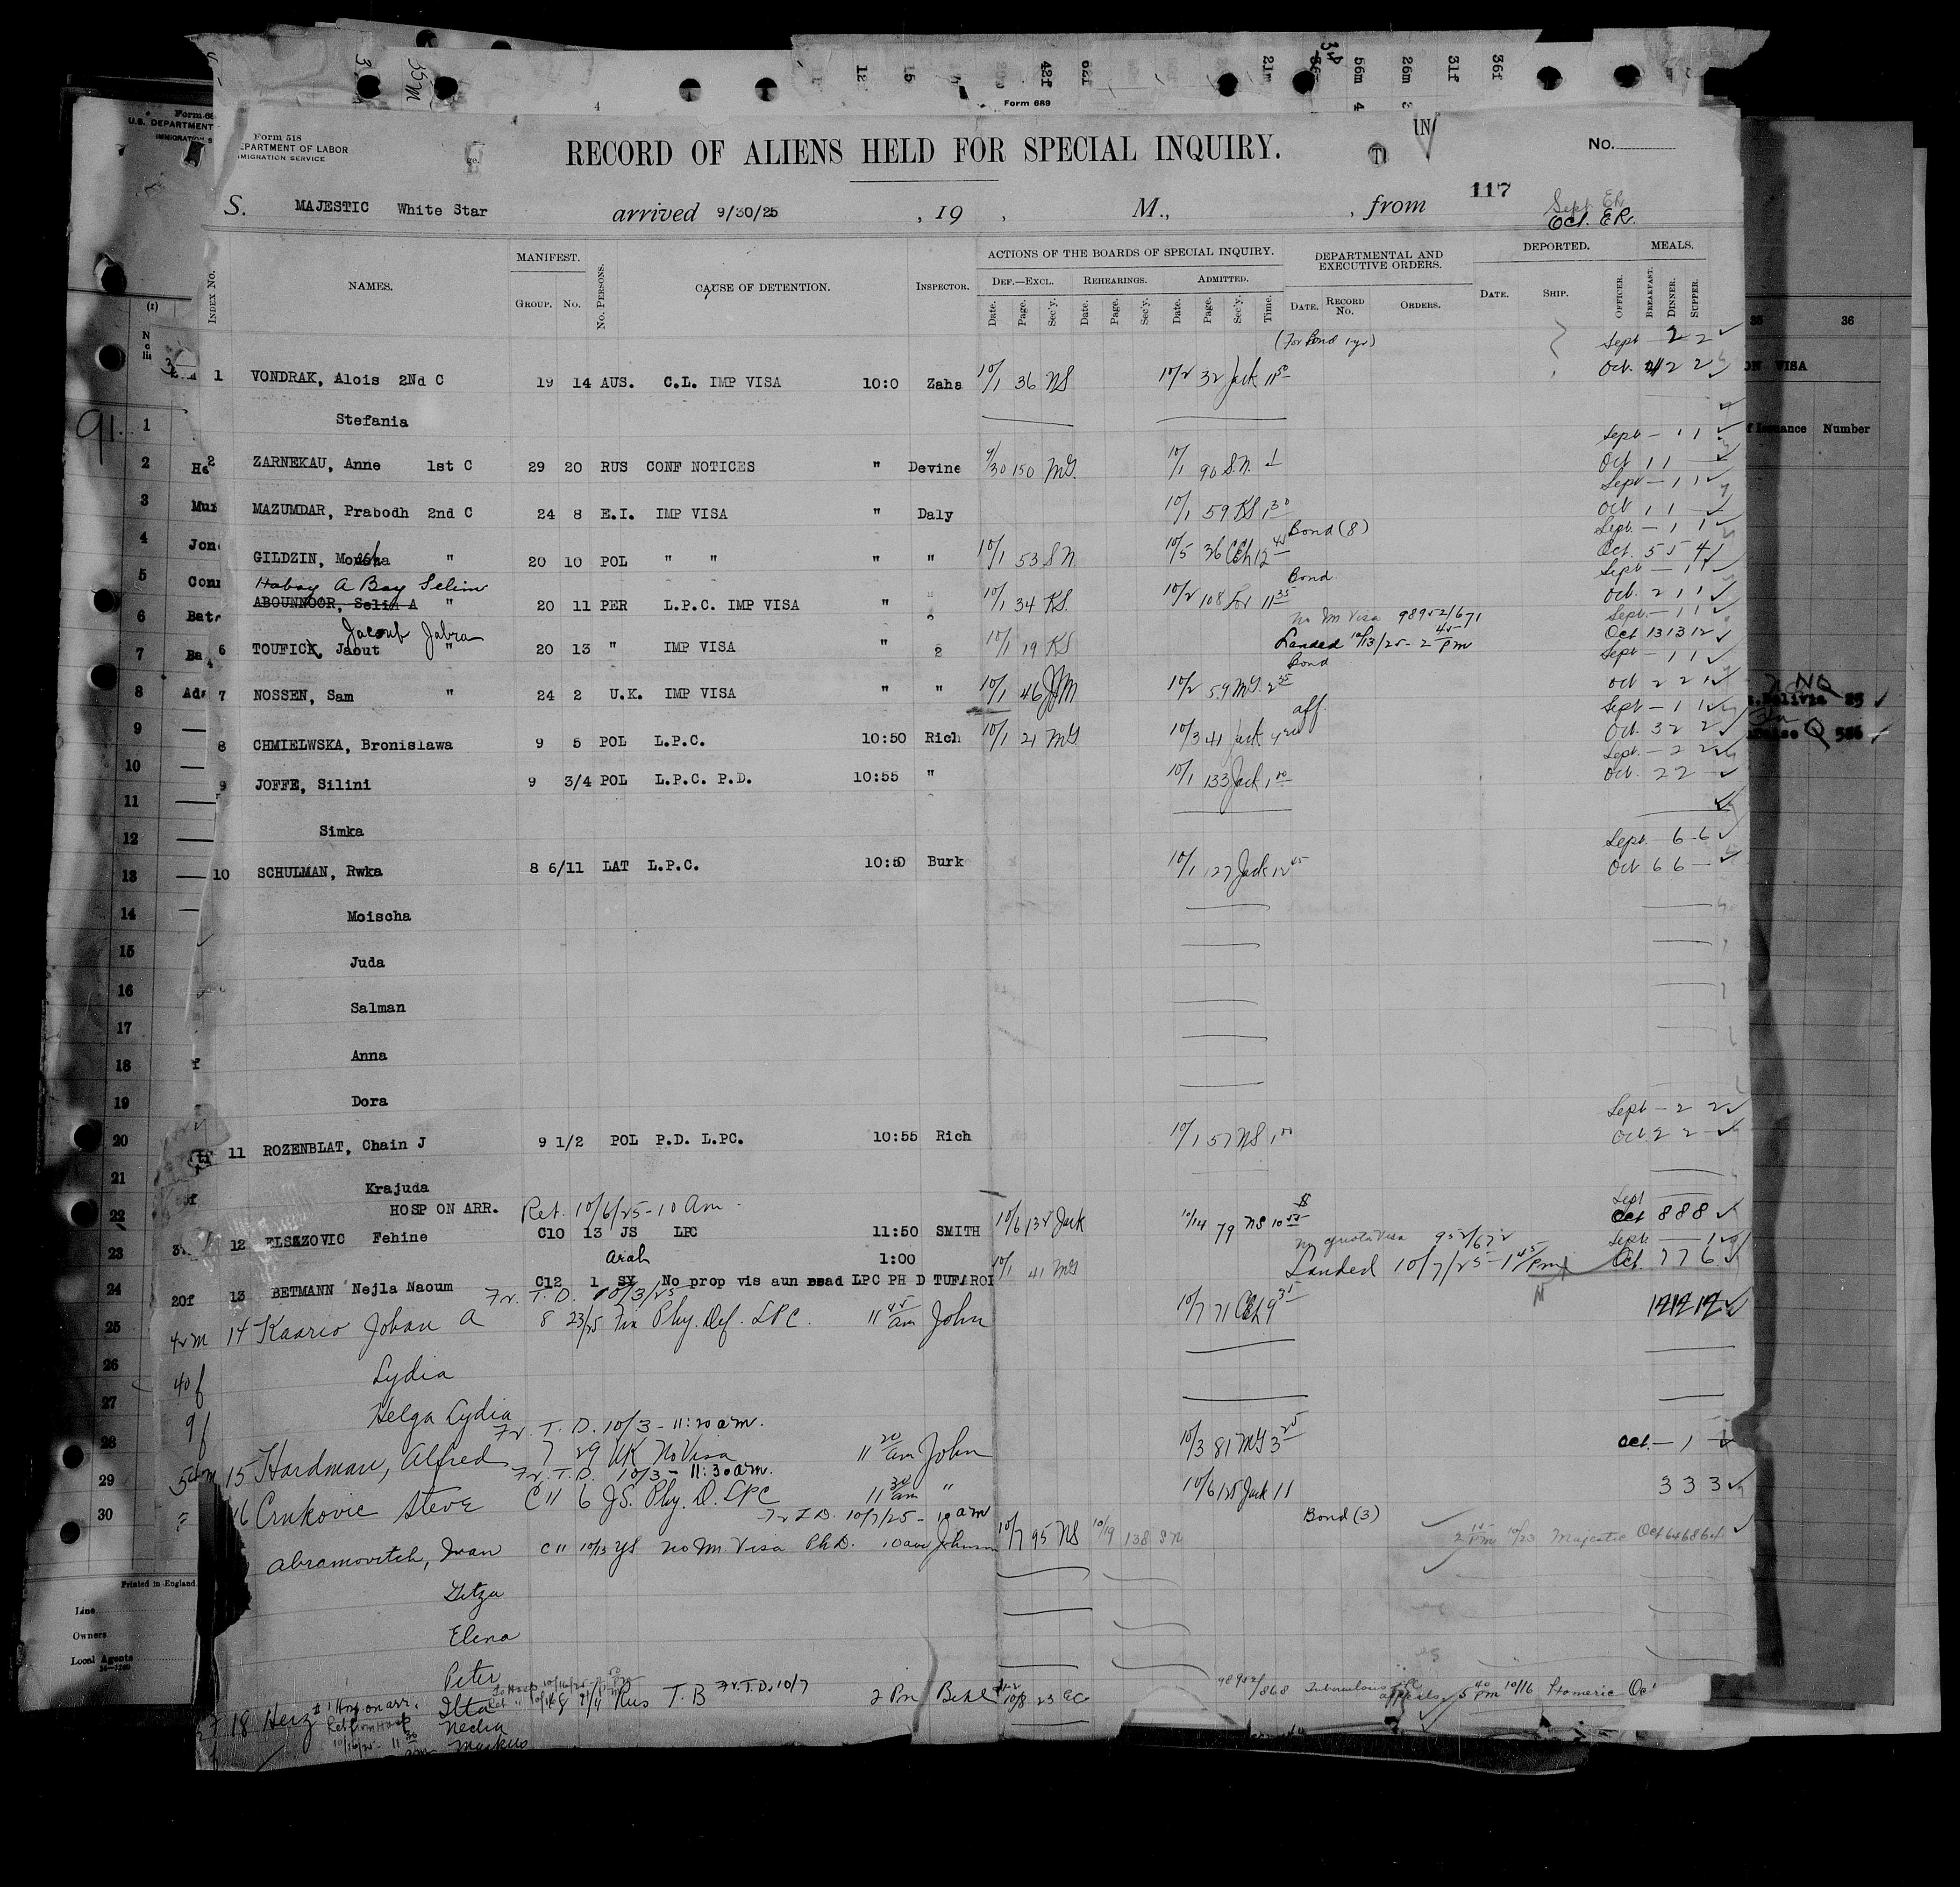 Form 689
Form 518
EPARTMENT OF LABOR
MIGRATION SERVICE
RECORD OF ALIENS HELD FOR SPECIAL INQUIRY.
No.
117
S. MAJESTIC White Star arrived 9/30/25 , 19 , M., , from
Sept. ER.
Oct. ER.
INDEX No. NAMES. MANIFEST. GROUP. No. No. PERSONS. CAUSE OF DETENTION. INSPECTOR.
ACTIONS OF THE BOARDS OF SPECIAL INQUIRY. DEF.—EXCL. REHEARINGS. ADMITTED.
Date. Page. Sec'y. Date. Page. Sec'y. Date. Page. Sec'y. Time.
DEPARTMENTAL AND EXECUTIVE ORDERS. DATE. RECORD No. ORDERS.
DEPORTED. DATE. SHIP. OFFICER. MEALS. BREAKFAST. DINNER. SUPPER.
(For Bond 1 yr) Sept - 2 2
1 VONDRAK, Alois 2Nd C 19 14 AUS. C.L. IMP VISA 10:0 Zaha 10/1 36 NS 10/2 32 Jack 11 50 Oct. 2 2
Stefania
Sept - 1 1
2 ZARNEKAU, Anne 1st C 29 20 RUS CONF NOTICES " Devine 9/30 150 MG. 10/1 90 S.N. Oct 1 1
Sept - 1 1
MAZUMDAR, Prabodh 2nd C 24 8 E.I. IMP VISA " Daly 10/1 59 KS 1 30 Oct 1 1
Bond (8) Sept. - 1 1
GILDZIN, " 20 10 POL " " " " 10/1 53 S N. 10/5 36 12 45 Oct. 5 5 4
Habay A Bay Selim Bond. Sept - 1 1
ABOUNNOOR, Selim A " 20 11 PER L.P.C. IMP VISA " 10/1 34 KS. 10/2 108 11 35 Oct. 2 1 1
Jacoub Jabra no Im Visa 98952/671 Sept. - 1 1
6 TOUFICK, Jaout " 20 13 " IMP VISA " 10/1 19 KS Landed 10/13/25 - 2 45 pm Oct 13 13 12
Bond Sept - 1 1
7 NOSSEN, Sam " 24 2 U.K. IMP VISA " " 10/1 46 JM 10/2 59 MG. 2 35 Oct 2 2 1
aff. Sept - 1 1
8 CHMIELWSKA, Bronislawa 9 5 POL L.P.C. 10:50 Rich 10/1 21 MG 10/3 41 Jack Oct. 3 2 2
Sept. - 2 2
9 JOFFE, Silini 9 3/4 POL L.P.C. P.D. 10:55 " 10/1 133 Jack 1 00 Oct. 2 2 -
Simka
Sept. - 6 - 6
10 SCHULMAN, Rwka 8 6/11 LAT L.P.C. 10:50 Burk 10/1 127 Jack 12 45 Oct 6 6 -
Moischa
Juda
Salman
Anna
Dora
Sept - 2 2
11 ROZENBLAT, Chain J 9 1/2 POL P.D. L.PC. 10:55 Rich 10/1 57 NS 1 00 Oct. 2 2 -
Krajuda
HOSP ON ARR. Ret. 10/6/25 - 10 Am. Sept
12 ELSAZOVIC Fehine C10 13 JS LPC 11:50 SMITH 10/6 132 Jack 10/14 79 NS 10 55 Oct 8 8 8
Arab 1:00 no quota Visa 952/672 Sept. - 1
13 BETMANN Nejla Naoum C12 1 SY No prop vis aun read LPC PH D TUFAROI 10/1 41 MG Landed 10/7/25 - 1 45/Pm Oct. 7 7 6
Fr. T. D. 10/3/25
14 Kaario Johan A 8 23/25 Fin Phy. Def. LPC. 11 45 am John 10/7 71 9 35 12 12 12
Lydia
Helga Lydia
Fr. T. D. 10/3 - 11:20 a.m.
15 Hardman, Alfred 7 29 UK No Visa 11 20 am John 10/3 81 MG 3 25 Oct. - 1
Fr. T. D. 10/3 - 11:30 a.m.
16 Crnkovic Steve C11 6 JS. Phy. D. LPC 11 30 am " 10/6 125 Jack 11 3 3 3
Fr T. D. 10/7/25 - 10 am Bond (3)
Abramovitch, Ivan C11 10/13 YS no Im. Visa Ph D. 10 am Johnson 10/7 95 NS 10/19 138 S N 2 15 pm 10/23 Majestic Oct 64 68 64
Getza
Elena
Peter
18 Herz #1 Hosp on arr. Itta Rus T. B Fr. T. D. 10/7 2 Pm 10/8 23 98952/868 Tuberculous 5 40 pm 10/16 Homeric Oct
Ret from Hosp Necha
10/16/25 - 11 30 am Markus
Printed in England.
Line
Owners
Local Agents
36
VISA
Number